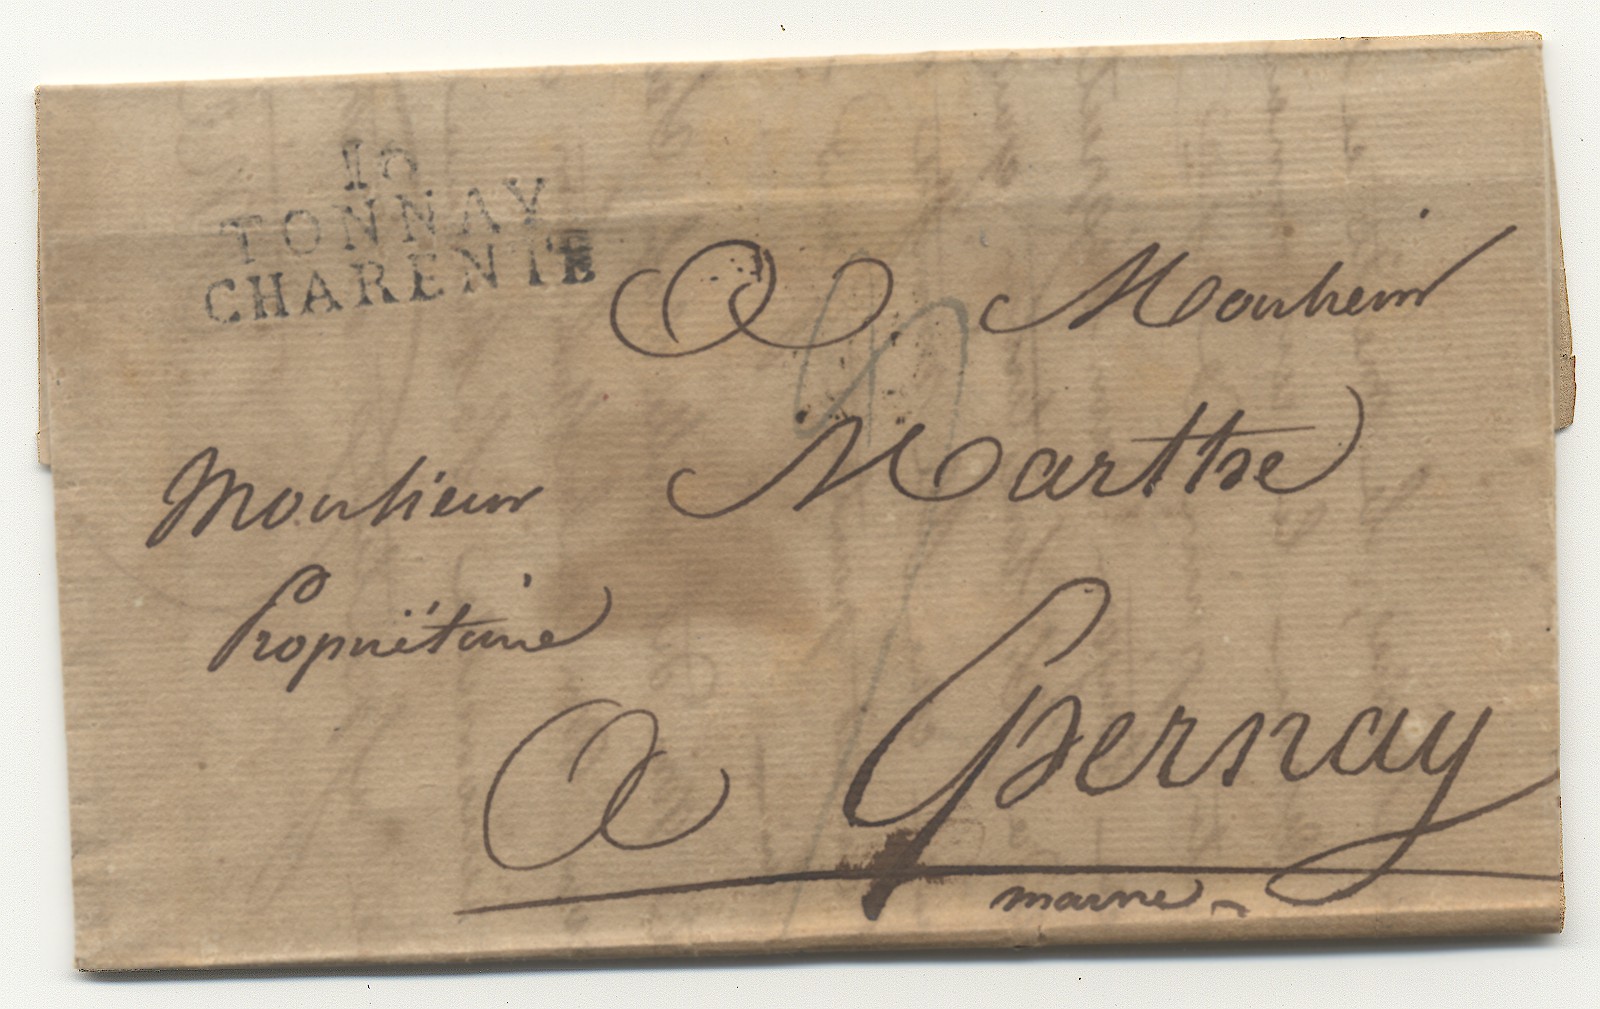 16
TONNAY
CHARENTE
A Monsieur
Monsieur Marthe
Propriétaire
A Epernay
marne